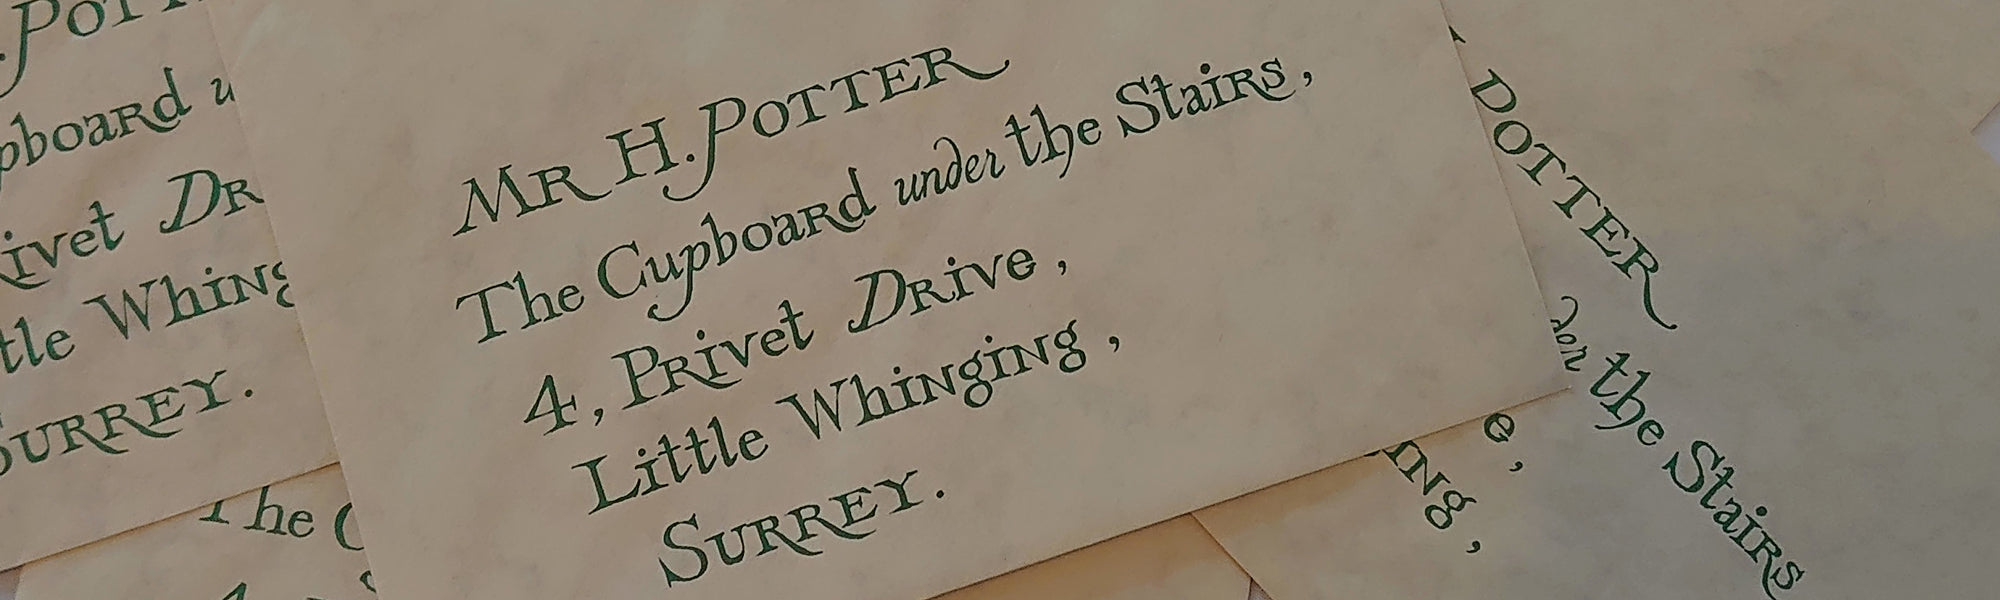 MR H. POTTER
The Cupboard under the Stairs,
4, Privet Drive,
Little Whinging,
SURREY.
POTT
pboard u
rivet DR
tle Whing
SURREY.
The C
POTTER
der the Stairs
e,
ing,